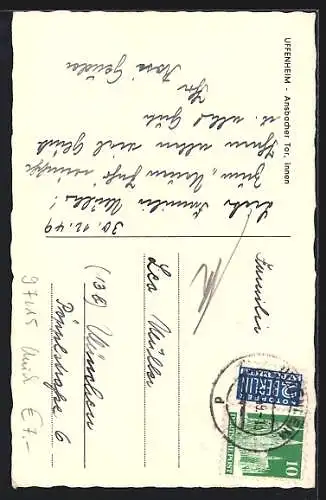 UFFENHEIM - Ansbacher Tor, innen
30.12.49
Liebe Familie Müller!
Zum "Neuen Jahr" wünsche
Ihnen allen viel Glück
u. alles Gute
Ihr
Familie
Leo Müller
(13b) München
6
NOTOPFER
2 BERLIN
STEUERMARKE
DEUTSCHE POST
10
97215 Uffenheim
€ 7.-